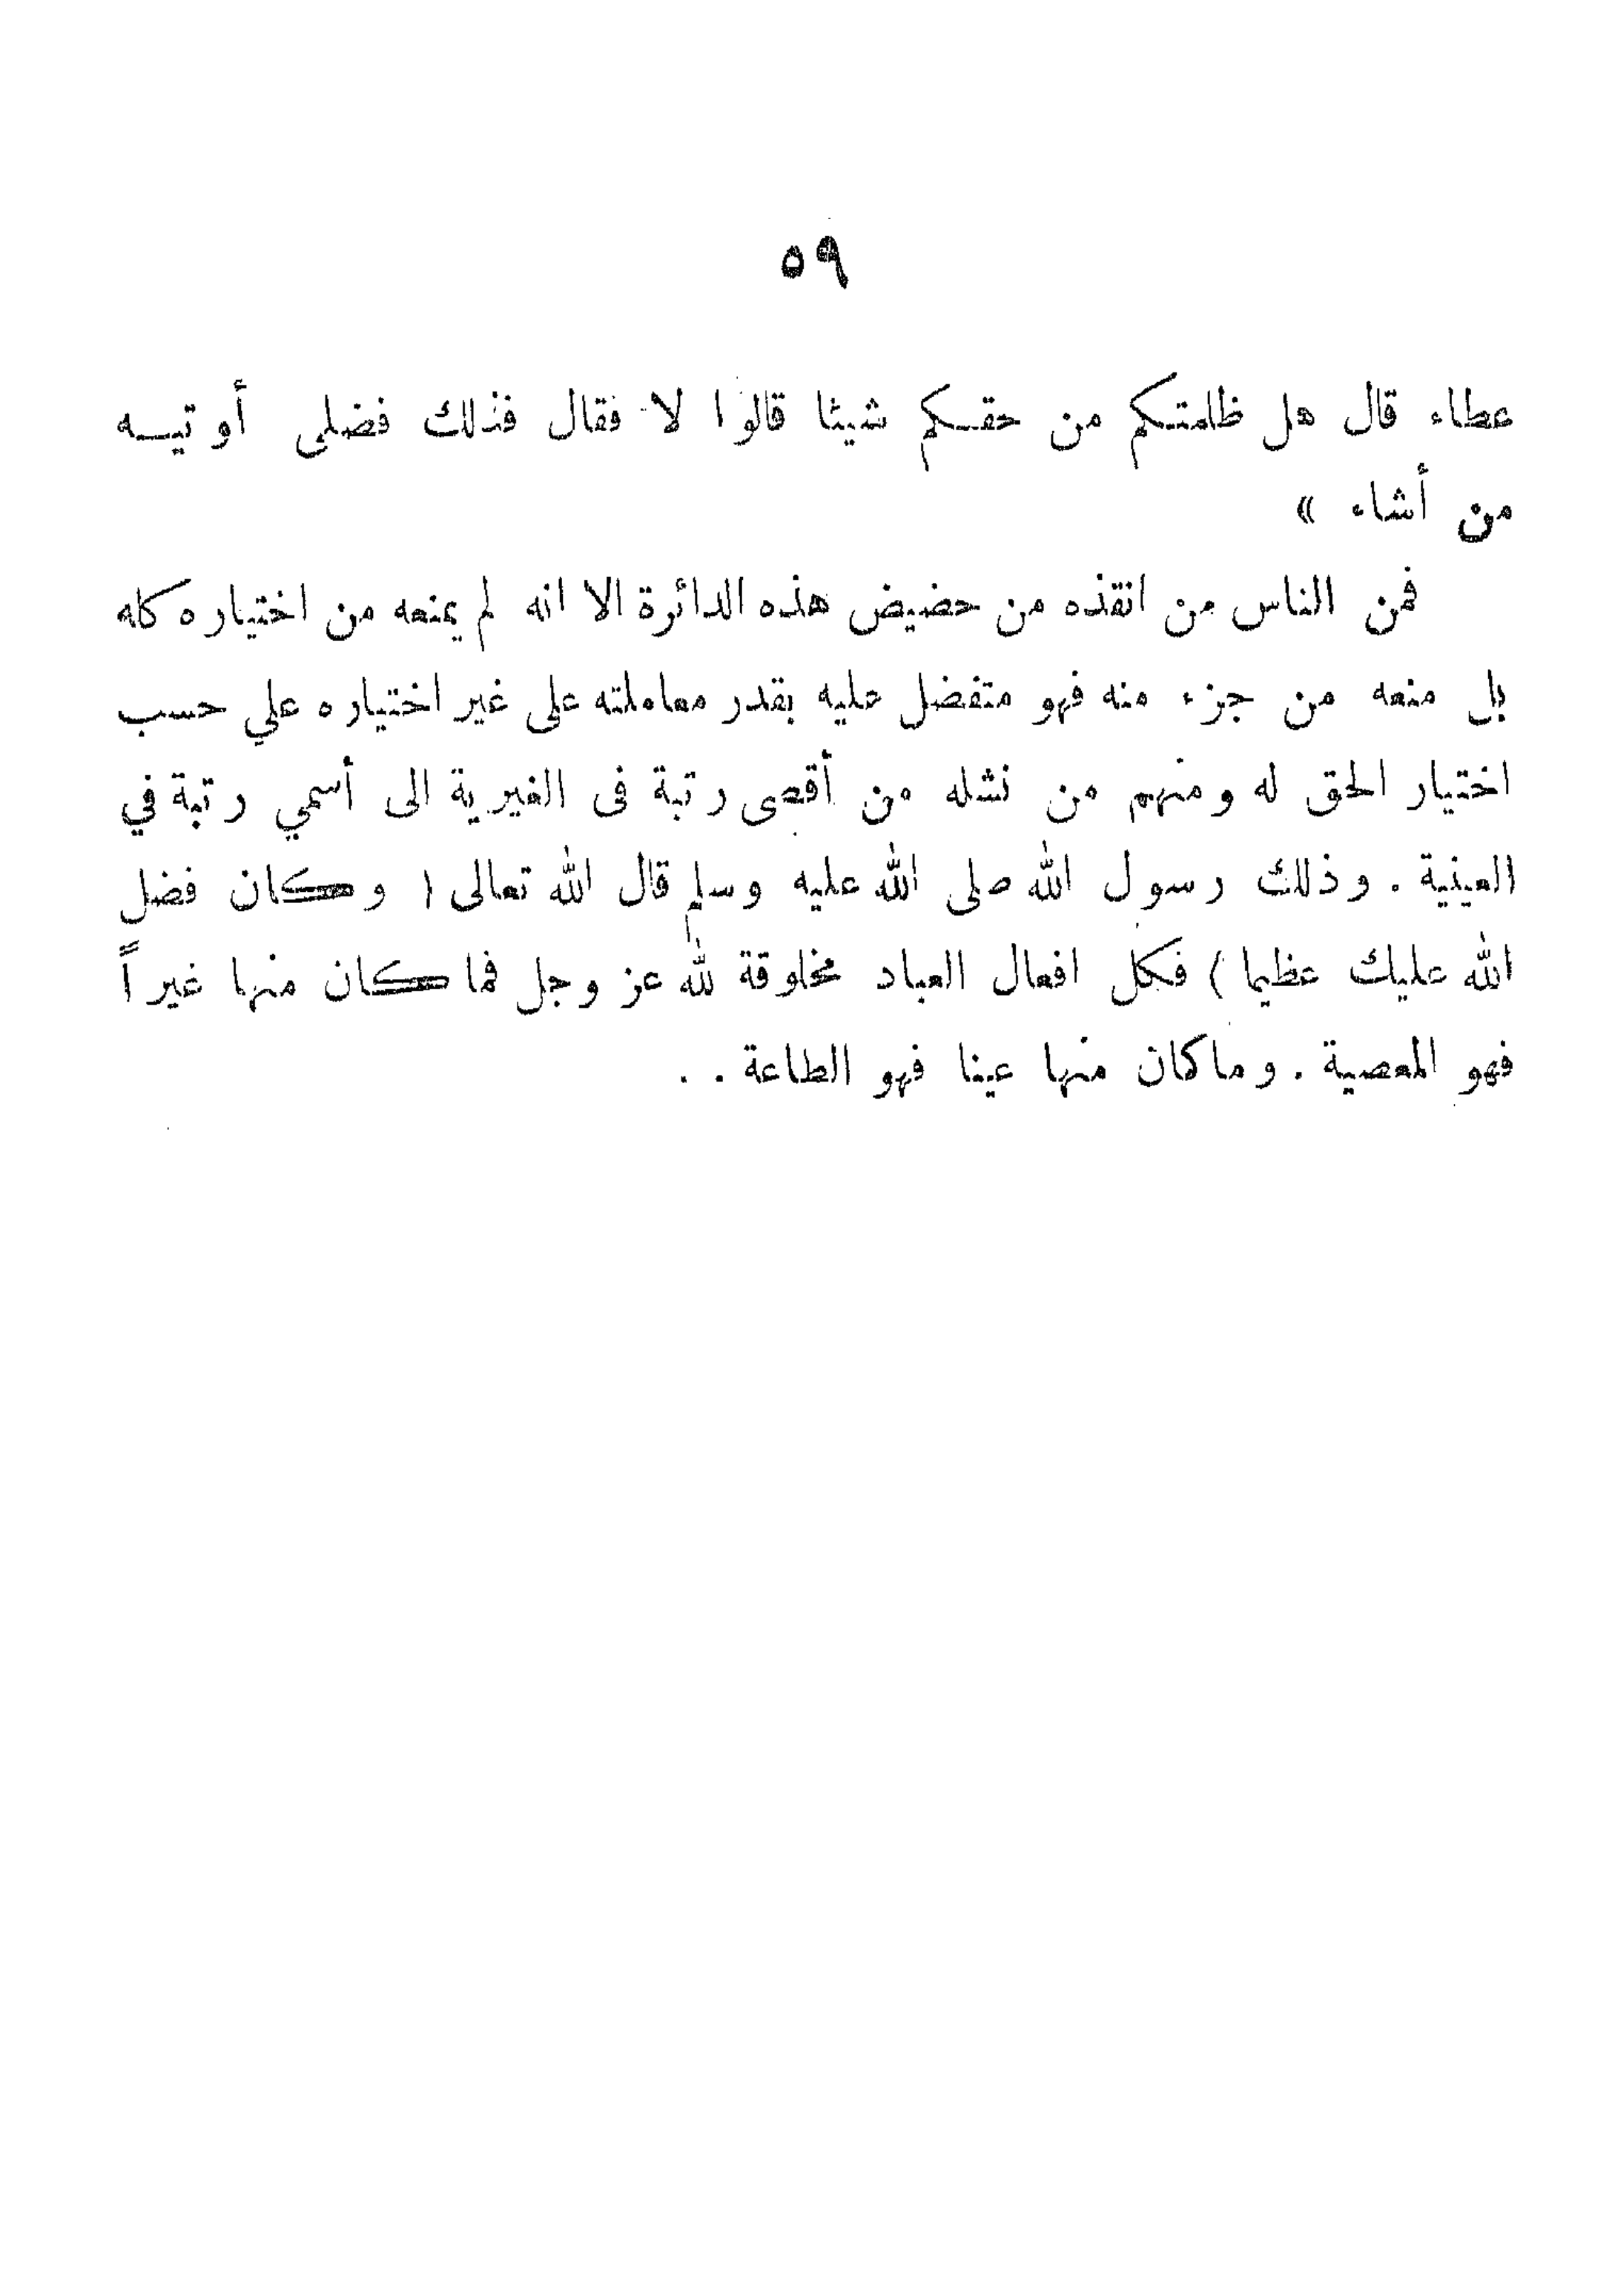 ٥٩
عطاء قال هل ظلمتكم من حقكم شيئا قالوا لا فقال فذلك فضلى أوتيه
من أشاء »
فمن الناس من انقذه من حضيض هذه الدائرة الا انه لم يمنعه من اختياره كله
بل منعه من جزء منه فهو متفضل عليه بقدر معاملته على غير اختياره علي حسب
اختيار الحق له ومنهم من نشله من أقصى رتبة فى الغيرية الى أسمي رتبة في
العينية . وذلك رسول الله صلى الله عليه وسلم قال الله تعالى ( وكان فضل
الله عليك عظيما ) فكل افعال العباد مخلوقة لله عز وجل فما كان منها غيراً
فهو المعصية . وما كان منها عينا فهو الطاعة . .